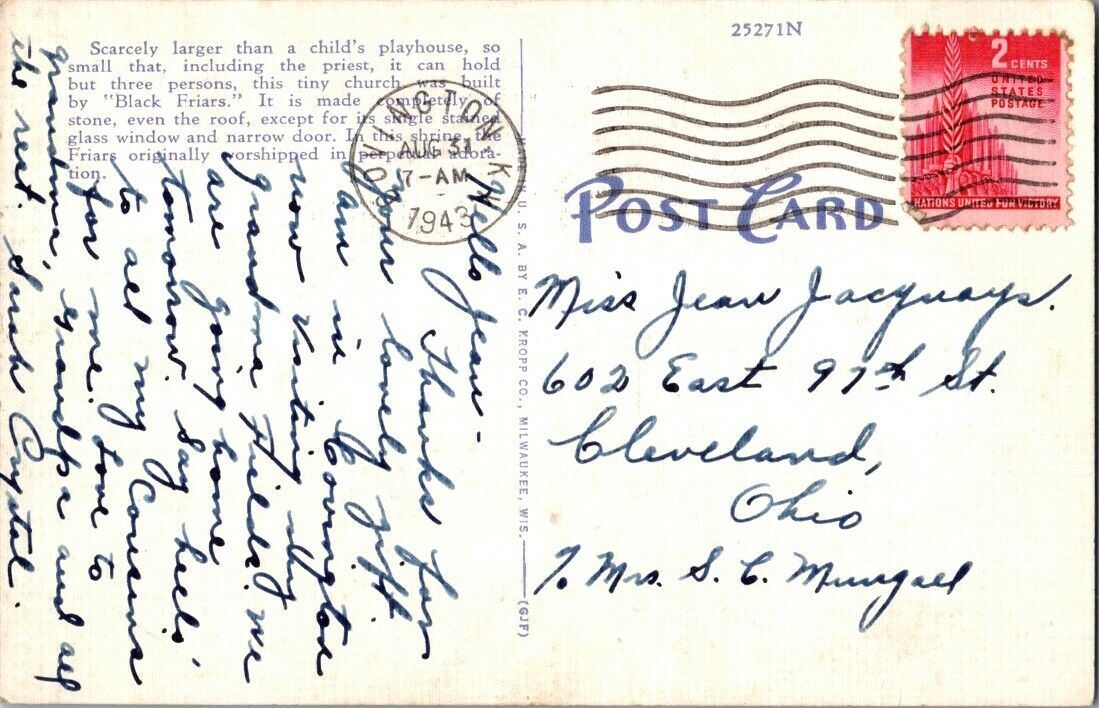 Scarcely larger than a child's playhouse, so
small that, including the priest, it can hold
but three persons, this tiny church was built
by "Black Friars." It is made completely of
stone, even the roof, except for its single stained
glass window and narrow door. In this shrine, the
Friars originally worshipped in perpetual adora-
tion.
25271N
2 CENTS
UNITED
STATES
POSTAGE
NATIONS UNITED FOR VICTORY
COVINGTON, KY.
AUG 31
7-AM
1943
POST CARD
MADE IN U. S. A. BY E. C. KROPP CO., MILWAUKEE, WIS.
(GJF)
Hello Jean-
Thanks for
your lovely gift.
I am in Covington
now visiting my
grandma Fields. We
are going home
tomorrow. Say hello
to all my Cousins
for me. Love to
grandma, grandpa and all
the rest. Sarah Crystal.
Miss Jean Jacquays.
602 East 97th St.
Cleveland,
Ohio
% Mrs. S. C. Mungall